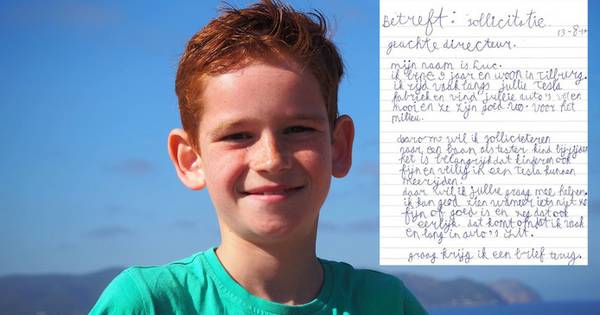 Betreft: sollicitatie
13-8-
geachte directeur.
mijn naam is Luc.
ik ben 9 jaar en woon in Tilburg.
ik rijd vaak langs jullie Tesla
fabriek en vind jullie auto's
mooi en ze zijn goed voor het
milieu.
daarom wil ik solliciteren
naar een baan als tester kind bij
het is belangrijk dat kinderen ook
fijn en veilig in een Tesla kunnen
meerijden.
daar wil ik jullie graag mee helpen.
ik kan goed zien wanneer iets niet
fijn of goed is en zeg dat ook
eerlijk. dat komt omdat ik vaak
en lang in auto's zit.
graag krijg ik een brief terug.